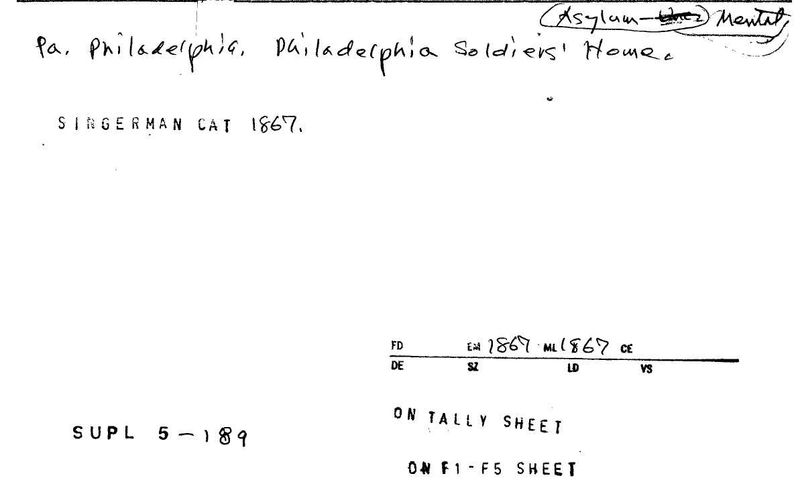 (Asylum- Mental,
Pa. Philadelphia. Philadelphia Soldiers' Home.
SINGERMAN CAT 1867.
FD EM 1867 ML 1867 CE
DE SZ LD VS
ON TALLY SHEET
SUPL 5-189
ON F1-F5 SHEET